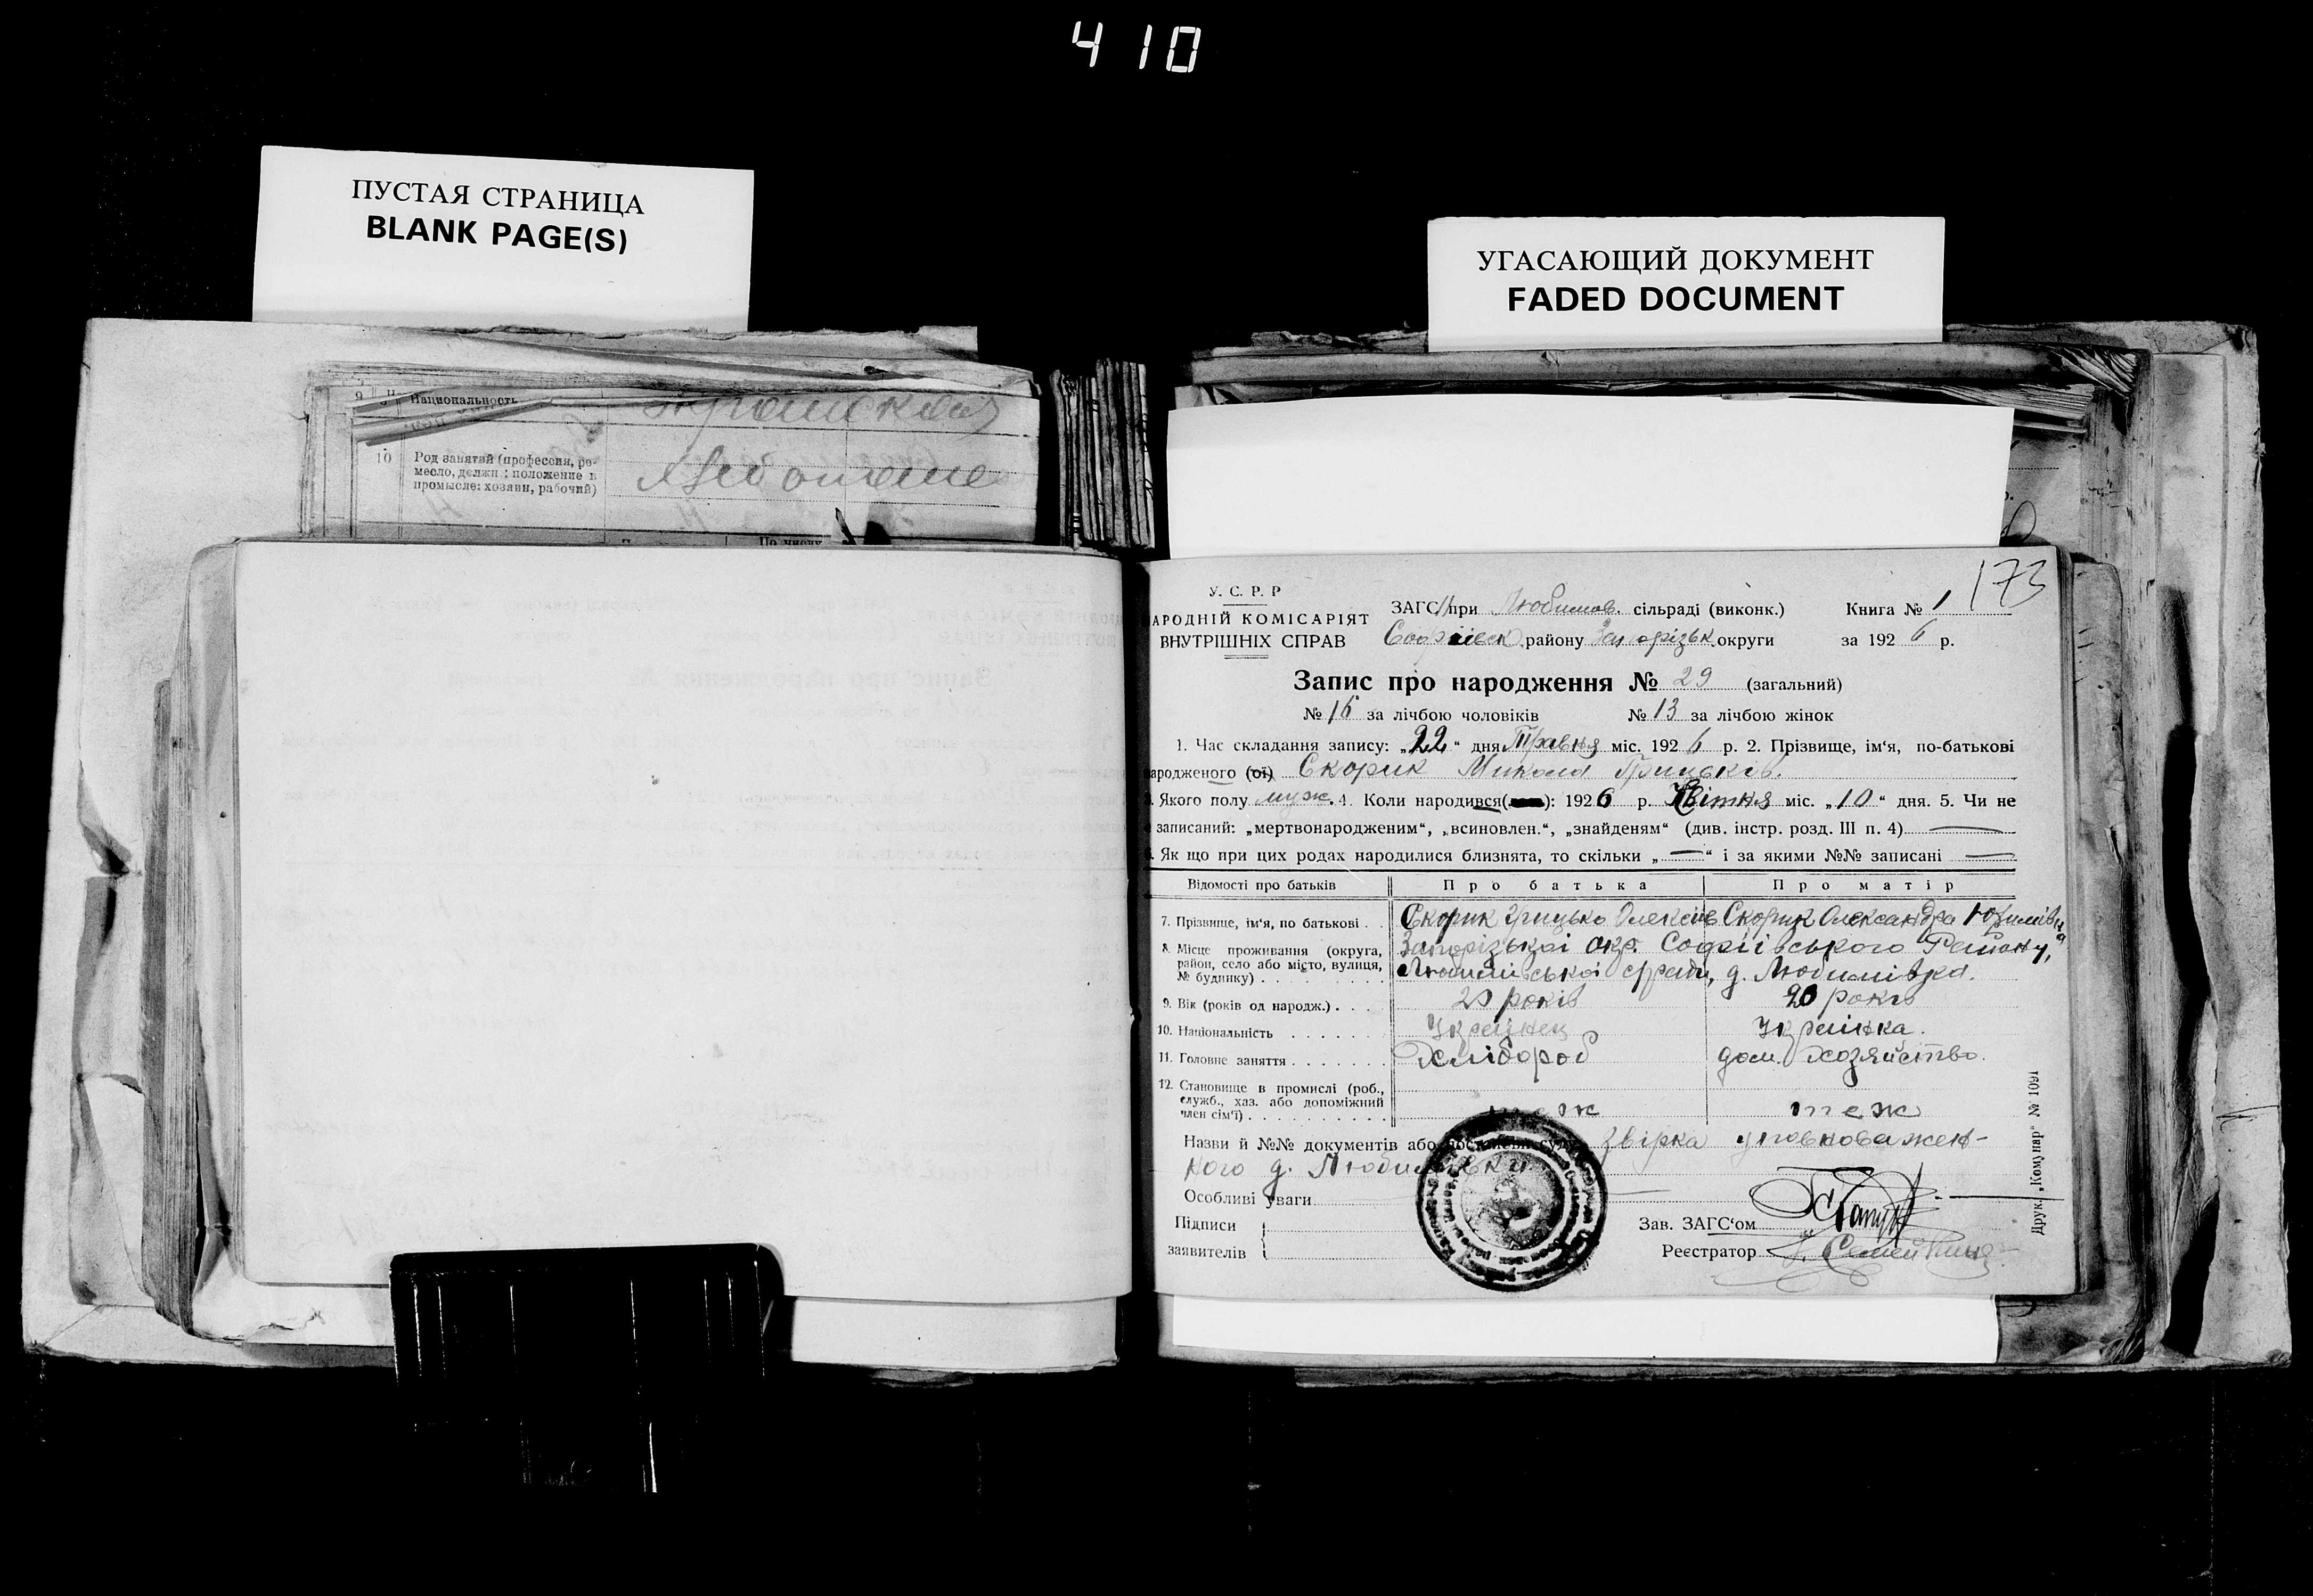 410
ПУСТАЯ СТРАНИЦА
BLANK PAGE(S)
УГАСАЮЩИЙ ДОКУМЕНТ
FADED DOCUMENT
9 Национальность
10 Род занятий (профессия, ре-
месло, должн.; положение в
промысле: хозяин, рабочий)
173
У. С. Р. Р
АРОДНІЙ КОМІСАРІЯТ
ВНУТРІШНІХ СПРАВ
ЗАГС при Любимов. сільраді (виконк.) Книга № 1
Софіївськ. району Запорізьк. округи за 1926 р.
Запис про народження № 29 (загальний)
№ 16 за лічбою чоловіків № 13 за лічбою жінок
1. Час складання запису: „22“ дня Травня міс. 1926 р. 2. Прізвище, ім‘я, по-батькові
ародженого (ої) Скорик Микола Грицьків.
3. Якого полу муж. 4. Коли народився( ): 1926 р. Квітня міс. „10“ дня. 5. Чи не
записаний: „мертвонародженим“, „всиновлен.“, „знайденям“ (див. інстр. розд. III п. 4) —
6. Як що при цих родах народилися близнята, то скільки „—“ і за якими №№ записані —
Відомості про батьків Про батька Про матір
7. Прізвище, ім‘я, по батькові . . Скорик Грицько Олексіїв Скорик Олександра Юхимівна
8. Місце проживання (округа, район, село або місто, вулиця, № будинку) . . . Запорізької окр. Софіївського Району,
Любимівської с/ради, д. Любимівка.
9. Вік (років од народж.) . . . 20 років 20 років
10. Національність . . . . . . Українец Українка.
11. Головне заняття . . . . . . . Хлібороб дом. хозяйство.
12. Становище в промислі (роб., служб., хаз. або допоміжний член сім‘ї) . . . . теж теж
Назви й №№ документів або постанови суду звірка уповноважен-
ного д. Любимівки
Особливі уваги
Підписи
заявителів
Зав. ЗАГС‘ом
Реєстратор
Друк. „Комунар“ № 1091